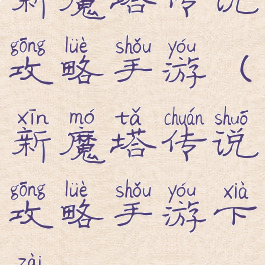 新魔塔传说
gōng lüè shǒu yóu
攻略手游（
xīn mó tǎ chuán shuō
新魔塔传说
gōng lüè shǒu yóu xià
攻略手游下
zài